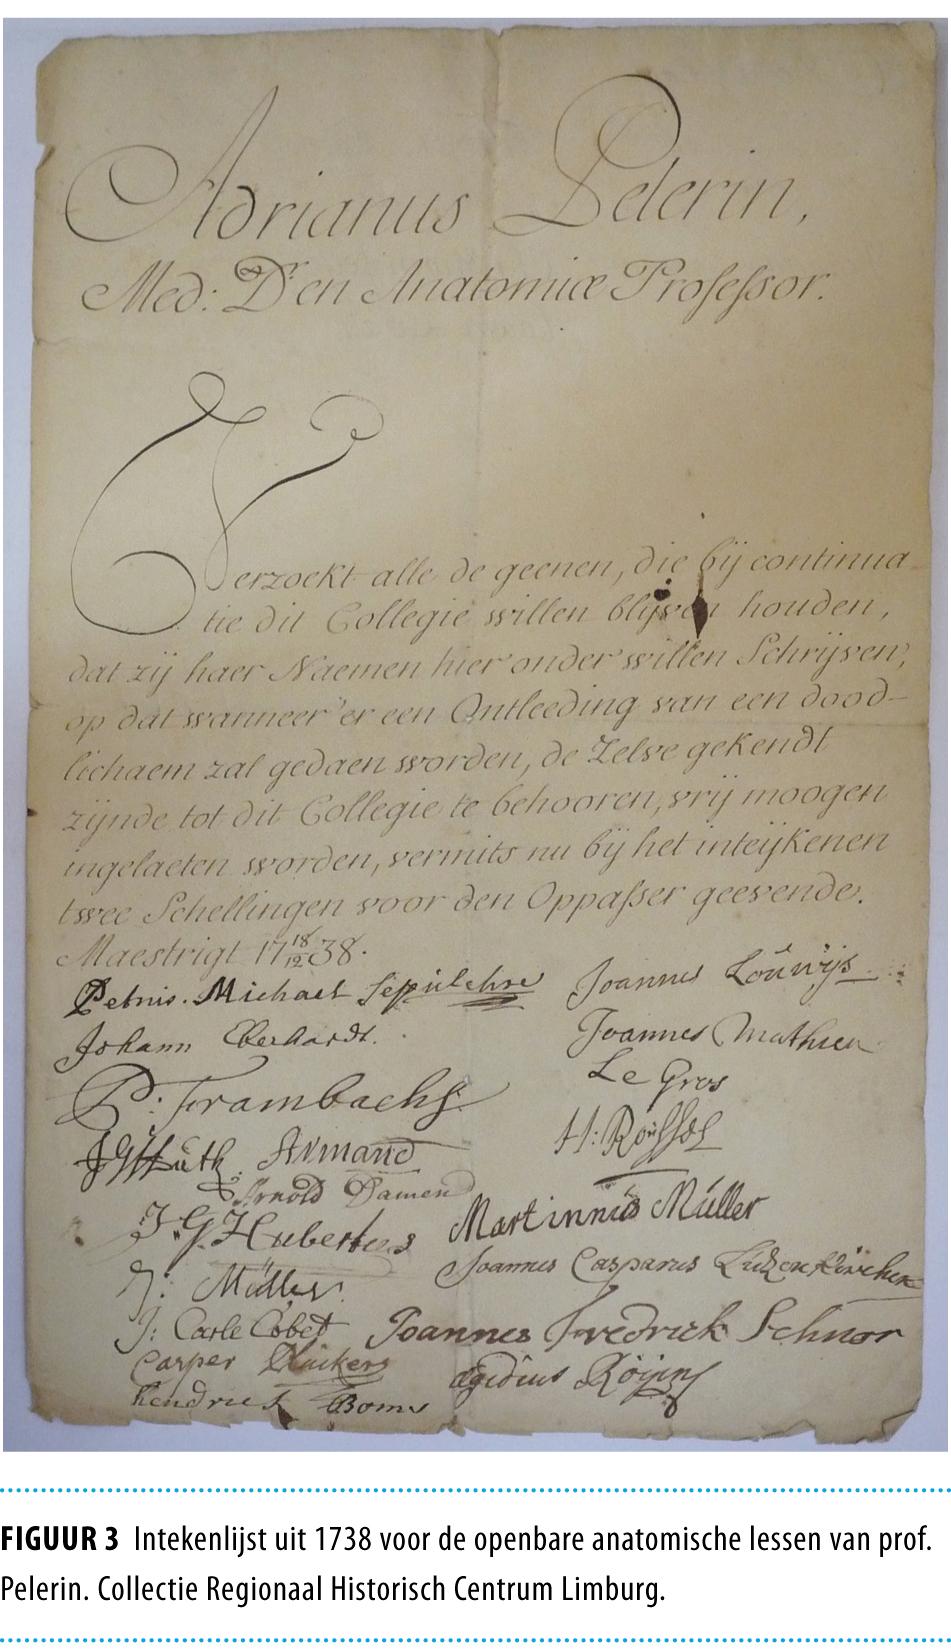 Adrianus Pelerin,
Med: Dr. en Anatomiæ Professor.
Verzoekt alle de geenen, die bij continua-
tie dit Collegie willen blijven houden,
dat zij haer Naemen hier onder willen Schrijven,
op dat wanneer 'er een Ontleeding van een dood-
lichaem zal gedaen worden, de Zelve gekendt
zijnde tot dit Collegie te behooren, vrij moogen
ingelaeten worden, vermits nu bij het inteijkenen
twee Schellingen voor den Oppasser geevende.
Maestrigt 17 18/12 38.
Petrus. Michael Sepulchre
Johann Eberhardt.
P: Frambachs
Armand
Arnold Damen
J. G. Hubertus
J: Müller
J: Carle Cobet
Casper
hendrick Boms
Joannes Louwijs
Joannes Mathieu
Le Gros
H: Roussel
Martinnus Müller
Joannes Casparus Lutzenkirchen
Joannes Fredrick Schnor
Ægidius
FIGUUR 3 Intekenlijst uit 1738 voor de openbare anatomische lessen van prof.
Pelerin. Collectie Regionaal Historisch Centrum Limburg.